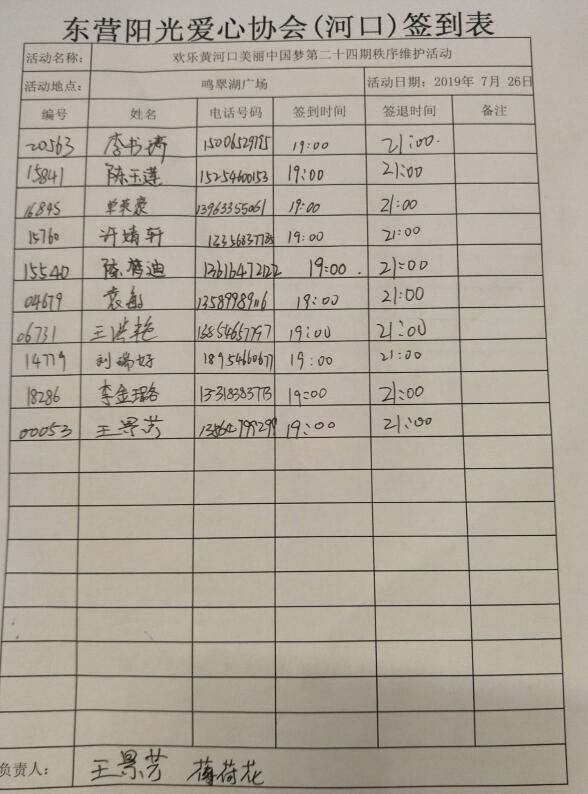 东营阳光爱心协会(河口)签到表
活动名称: 欢乐黄河口美丽中国梦第二十四期秩序维护活动
活动地点: 鸣翠湖广场 活动日期: 2019年 7月 26日
编号 姓名 电话号码 签到时间 签退时间 备注
20563 李书琦 19:00 21:00
15841 陈玉莲 15254600153 19:00 21:00
16845 单英豪 13963355061 19:00 21:00
15760 许婧轩 19:00 21:00
15540 陈梦迪 13616472122 19:00 21:00
04679 袁敏 13589989116 19:00 21:00
06731 王洪艳 13854657797 19:00 21:00
14779 刘瑞好 18954660677 19:00 21:00
18286 李金璐 19:00 21:00
00053 王景芳 19:00 21:00
负责人: 王景芳 荷花